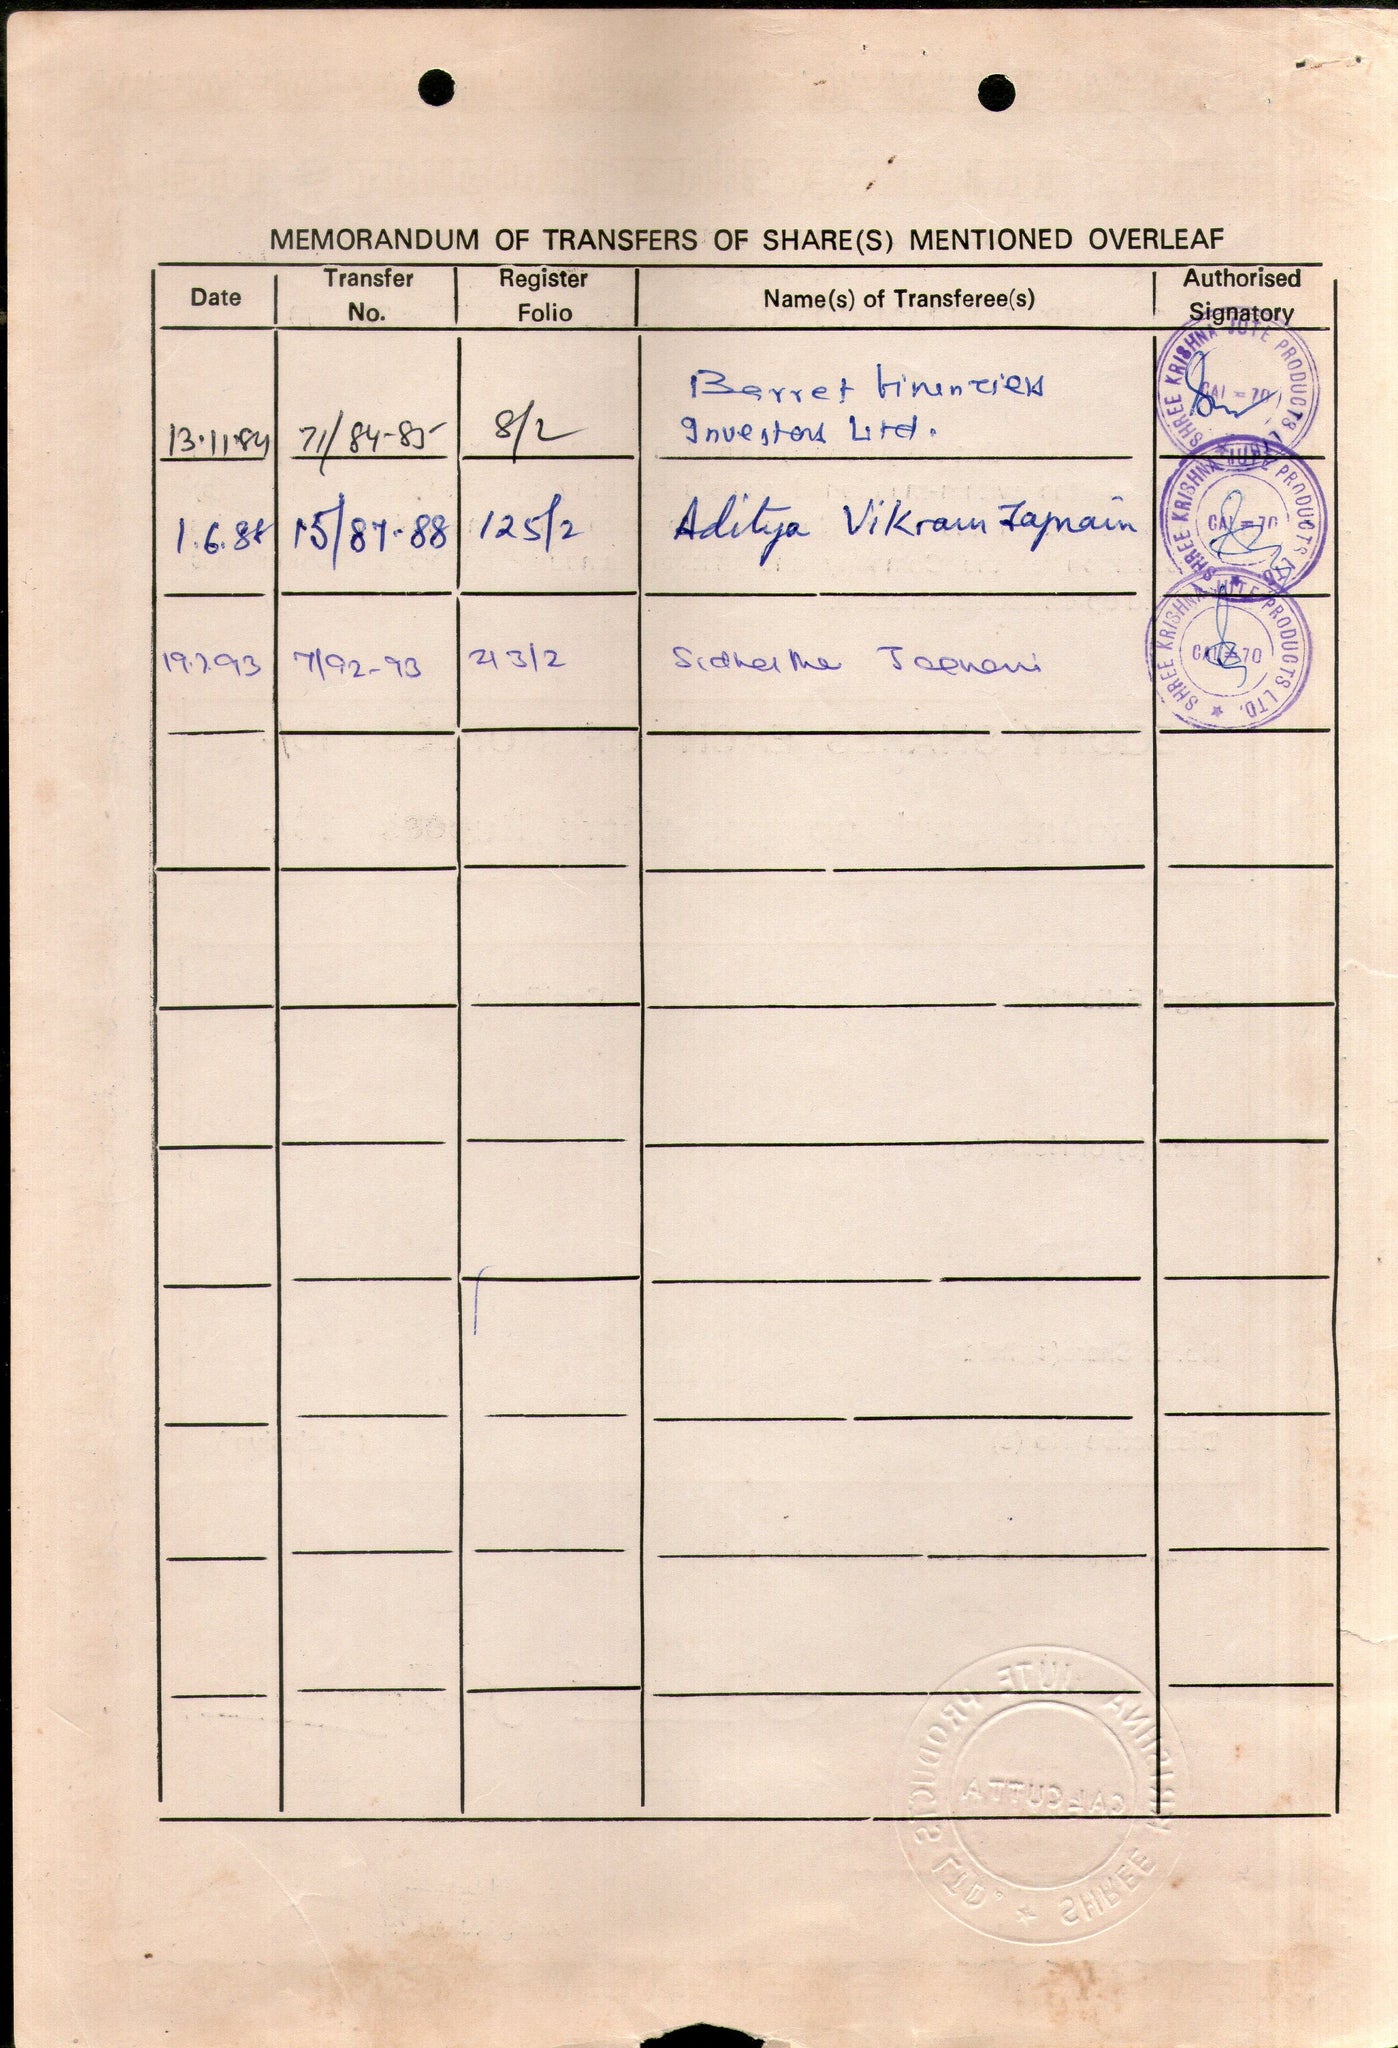 MEMORANDUM OF TRANSFERS OF SHARE(S) MENTIONED OVERLEAF
Date Transfer No. Register Folio Name(s) of Transferee(s) Authorised Signatory
13.11.84 71/84-85 8/2 Barret
Investors Ltd.
1.6.88 15/87-88 125/2 Aditya Vikram
19.7.93 7/92-93 213/2
SHREE KRISHNA JUTE PRODUCTS LTD.
CAL=70
SHREE KRISHNA JUTE PRODUCTS LTD.
CAL=70
SHREE KRISHNA JUTE PRODUCTS LTD.
CAL=70
SHREE KRISHNA JUTE PRODUCTS LTD.
CALCUTTA